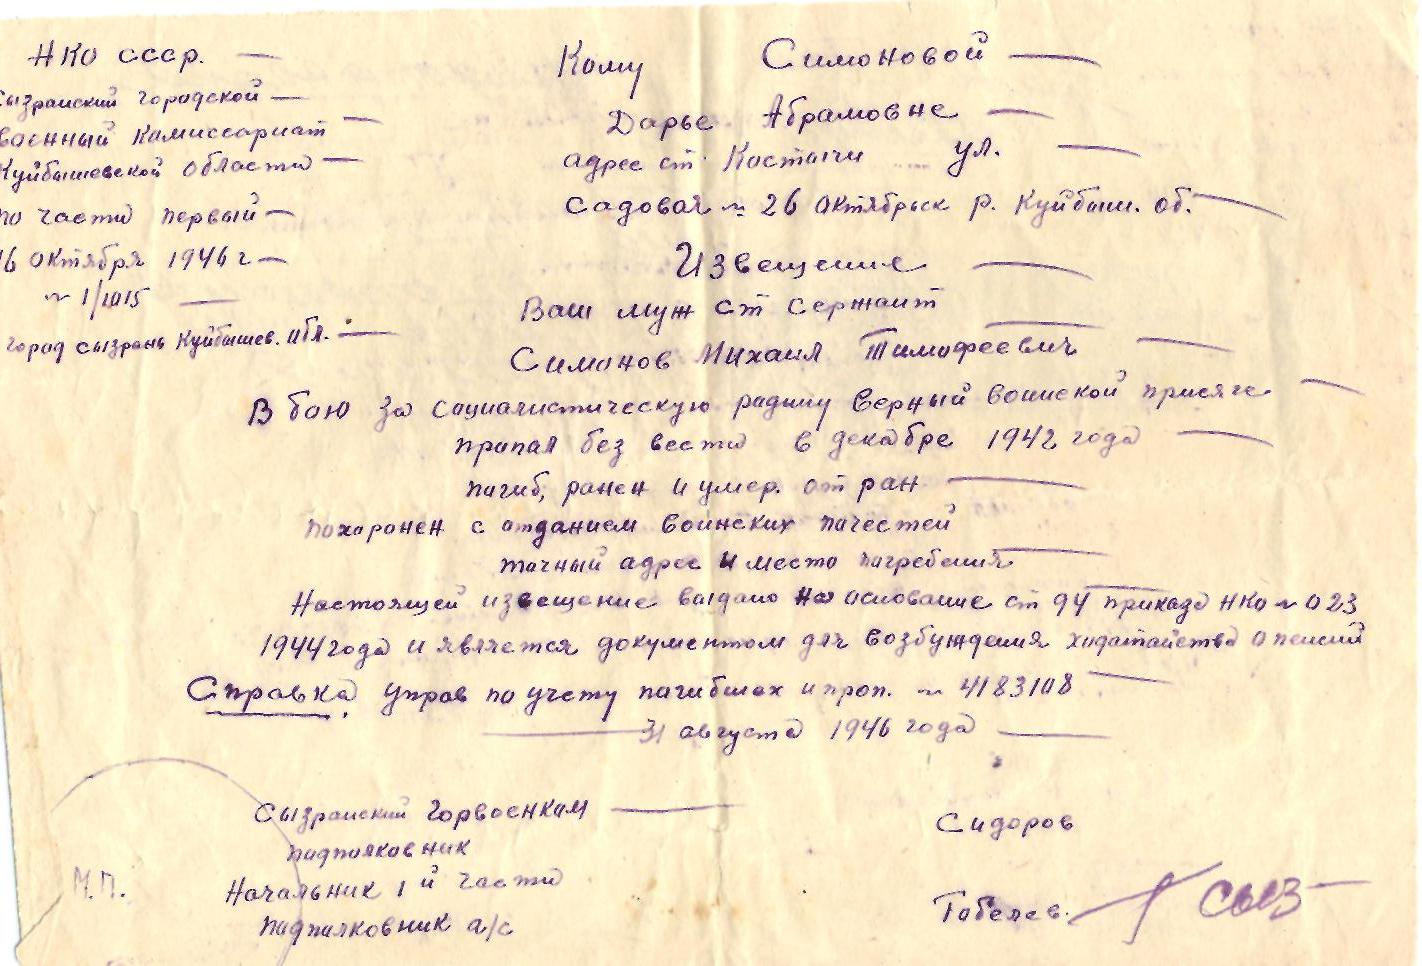 НКО СССР.
Сызранский городской
военный комиссариат
Куйбышевской области
по части первый
16 октября 1946 г
№ 1/1015
город Сызрань Куйбышев. обл.
Кому Симоновой
Дарье Абрамовне
адрес ст. Костычи ул.
садовая № 26 октябрьск р. Куйбыш. об.
Извещение
Ваш муж ст сержант
Симонов Михаил Тимофеевич
В бою за социалистическую родину верный воинской присяге
пропал без вести в декабре 1942 года
погиб, ранен и умер. от ран
похоронен с отданием воинских почестей
точный адрес и место погребения
Настоящей извещение выдано на основание ст 94 приказа НКО № 023
1944 года и является документом для возбуждения ходатайства о пенсий
Справка управ по учету погибших и проп. № 4183108
31 августа 1946 года
Сызранский Горвоенком
подполковник
Сидоров
М.П.
Начальник 1 й части
подполковник а/с
Тобелев.
Сыз